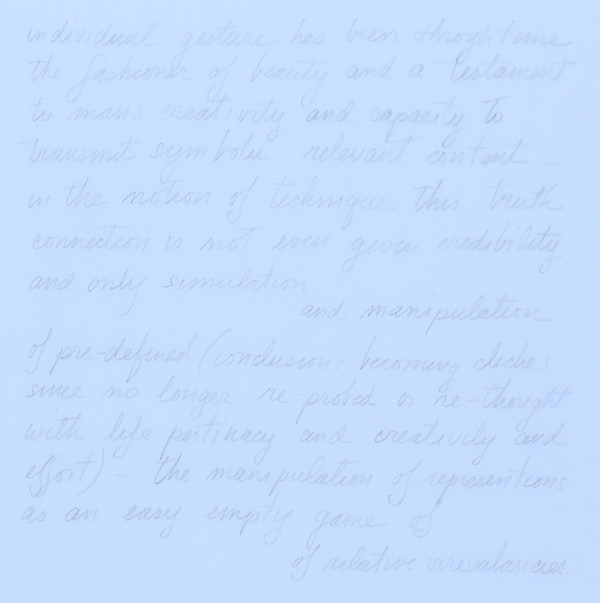 individual gesture has been through time
the fashioner of beauty and a testament
to man's creativity and capacity to
transmit symbolic relevant content -
in the notion of technique this truth
connection is not even given credibility
and only simulation
and manipulation
of pre-defined (conclusions becoming cliches
since no longer re-probed or re-thought
with life pertinacy and creativity and
effort) - the manipulation of representions
as an easy empty game of
of relative